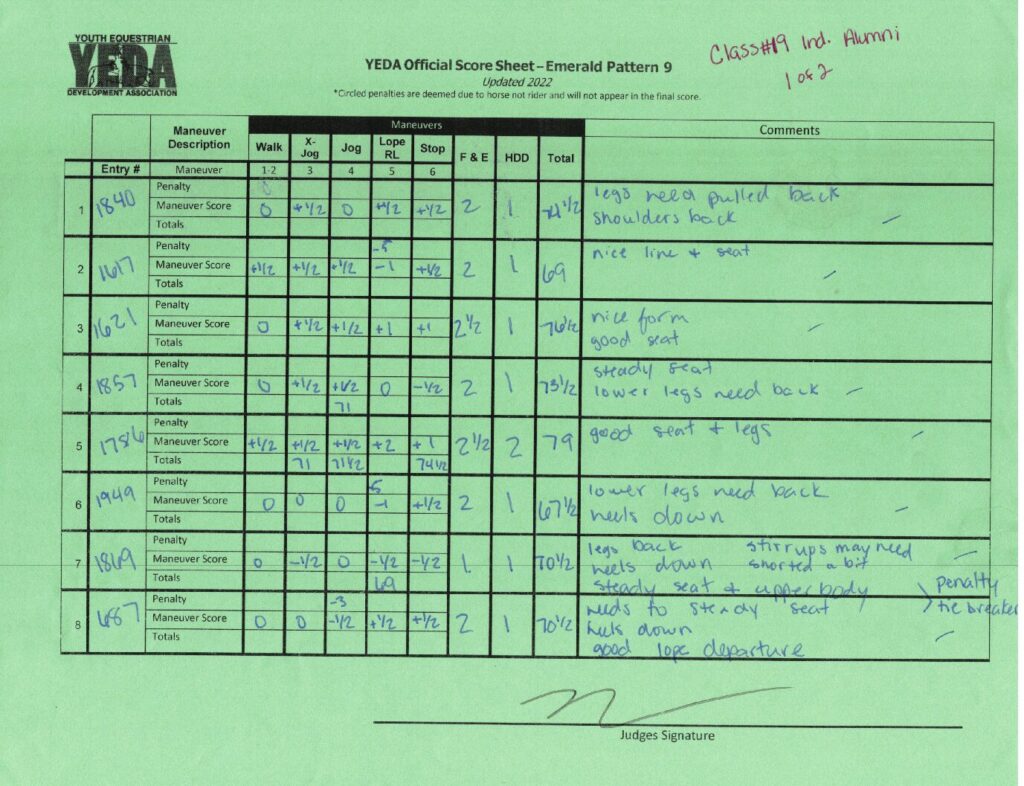 YOUTH EQUESTRIAN
YEDA
DEVELOPMENT ASSOCIATION
Class#19 Ind. Alumni
1 of 2
YEDA Official Score Sheet – Emerald Pattern 9
Updated 2022
*Circled penalties are deemed due to horse not rider and will not appear in the final score.
Maneuver Description Maneuvers Comments
Walk X-Jog Jog Lope RL Stop F & E HDD Total
Entry # Maneuver 1-2 3 4 5 6
1 1840 Penalty
Maneuver Score 0 +1/2 0 +1/2 +1/2 2 1 74 1/2
Totals
legs need pulled back
shoulders back
2 1617 Penalty -5
Maneuver Score +1/2 +1/2 +1/2 -1 +1/2 2 1 69
Totals
nice line + seat
3 1621 Penalty
Maneuver Score 0 +1/2 +1/2 +1 +1 2 1/2 1 76 1/2
Totals
nice form
good seat
4 1857 Penalty
Maneuver Score 0 +1/2 +1/2 0 -1/2 2 1 73 1/2
Totals 71
steady seat
lower legs need back
5 1786 Penalty
Maneuver Score +1/2 +1/2 +1/2 +2 +1 2 1/2 2 79
Totals 71 71 1/2 74 1/2
good seat + legs
6 1949 Penalty 5
Maneuver Score 0 0 0 -1 +1/2 2 1 67 1/2
Totals
lower legs need back
heels down
7 1869 Penalty
Maneuver Score 0 -1/2 0 -1/2 -1/2 1 1 70 1/2
Totals 69
legs back stirrups may need
heels down shorted a bit
steady seat & upper body
8 1687 Penalty -3
Maneuver Score 0 0 -1/2 +1/2 +1/2 2 1 70 1/2
Totals
needs to steady seat
heels down
good lope departure
penalty
tie breaker
Judges Signature